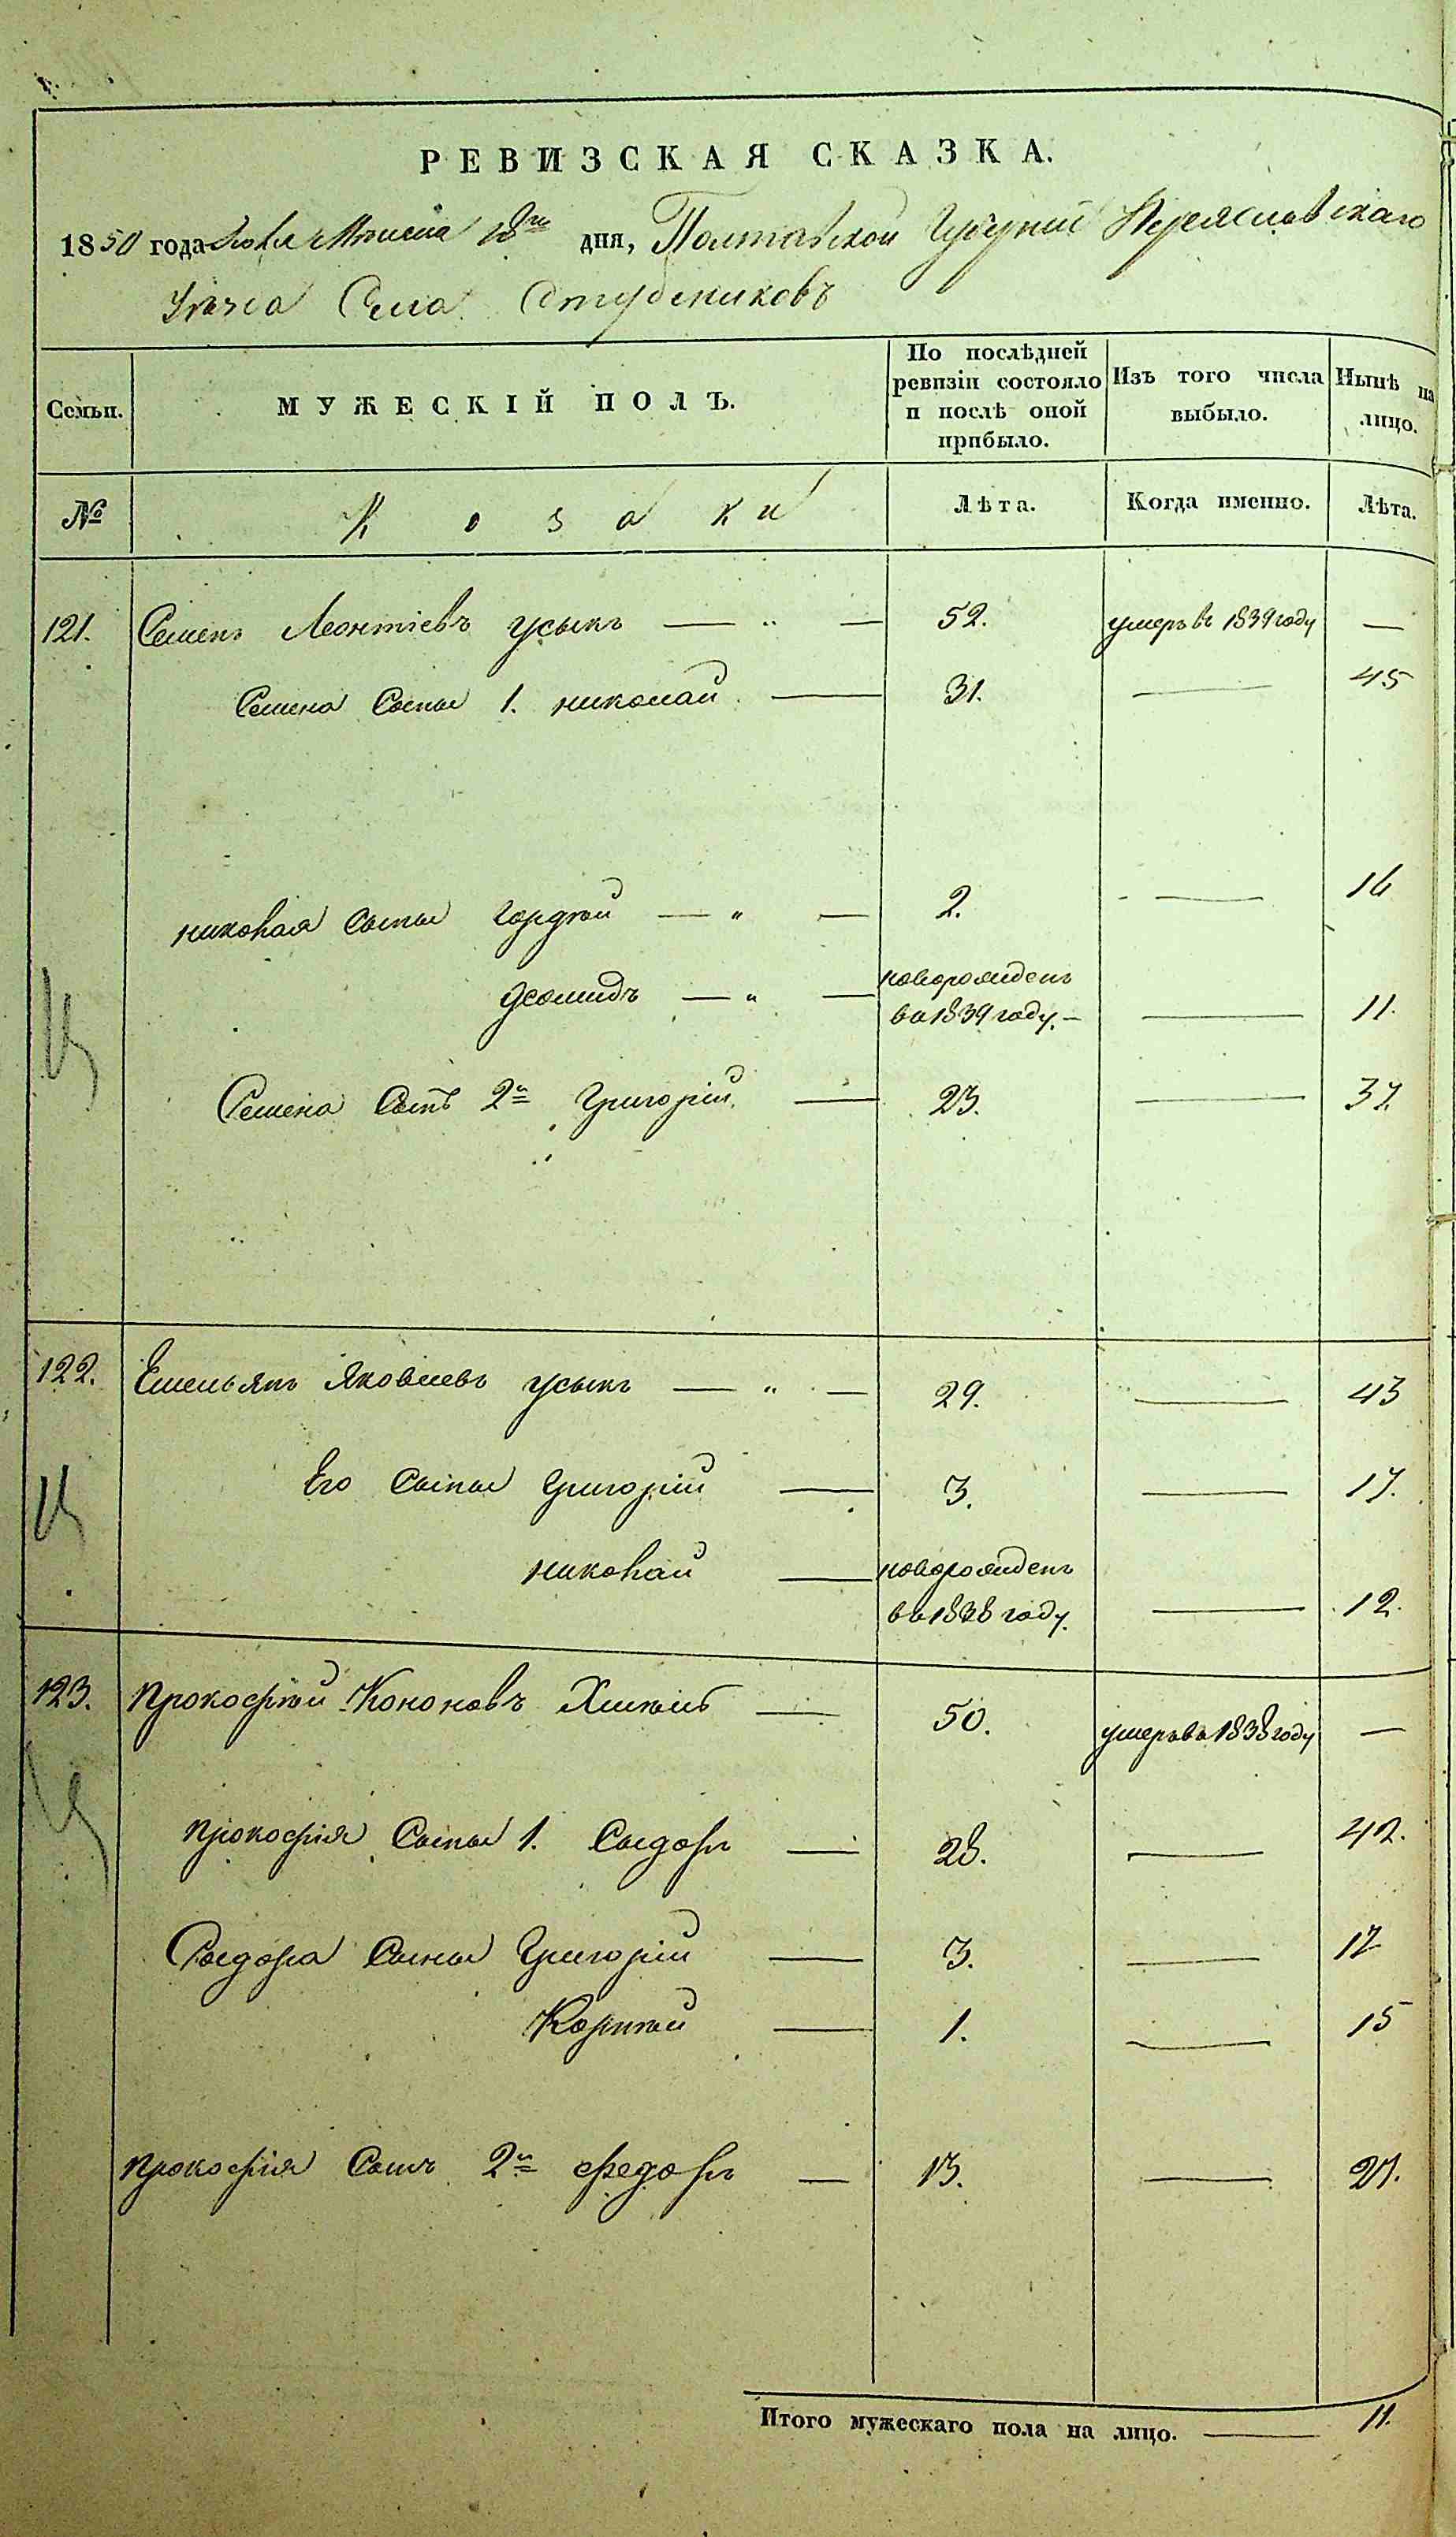 РЕВИЗСКАЯ СКАЗКА.
1850 года Июля Мѣсяца 18го дня, Полтавской Губерніи Переяславскаго
Уѣзда Села Студениковъ
Семьи. МУЖЕСКІЙ ПОЛЪ. По послѣдней ревизіи состояло и послѣ оной прибыло. Изъ того числа выбыло. Нынѣ на лицо.
№ Козаки Лѣта. Когда именно. Лѣта.
121. Семенъ Леонтіевъ усыкъ — „ — 52. умеръ въ 1839 году —
Семена Сыны 1. николай — 31. — 45
николая Сыны Гордѣй — „ — 2. — 16
Диомидъ — „ — новорожденъ
въ 1839 году. — — 11.
Семена Сынъ 2й Григорій — 23. — 37.
122. Емельянъ Яковлевъ усыкъ — „ — 29. — 43
Его Сыны Григорій — 3. — 17.
николай — новорожденъ
въ 1838 году. — 12.
123. Прокофій Кононовъ — 50. умеръ въ 1838 году —
Прокофія Сыны 1. Сыдоръ — 28. — 42.
Сыдора Сыны Григорій — 3. — 17
Корнѣй — 1. — 15
Прокофія Сынъ 2й Федоръ — 13. — 27.
Итого мужескаго пола на лицо. — 11.